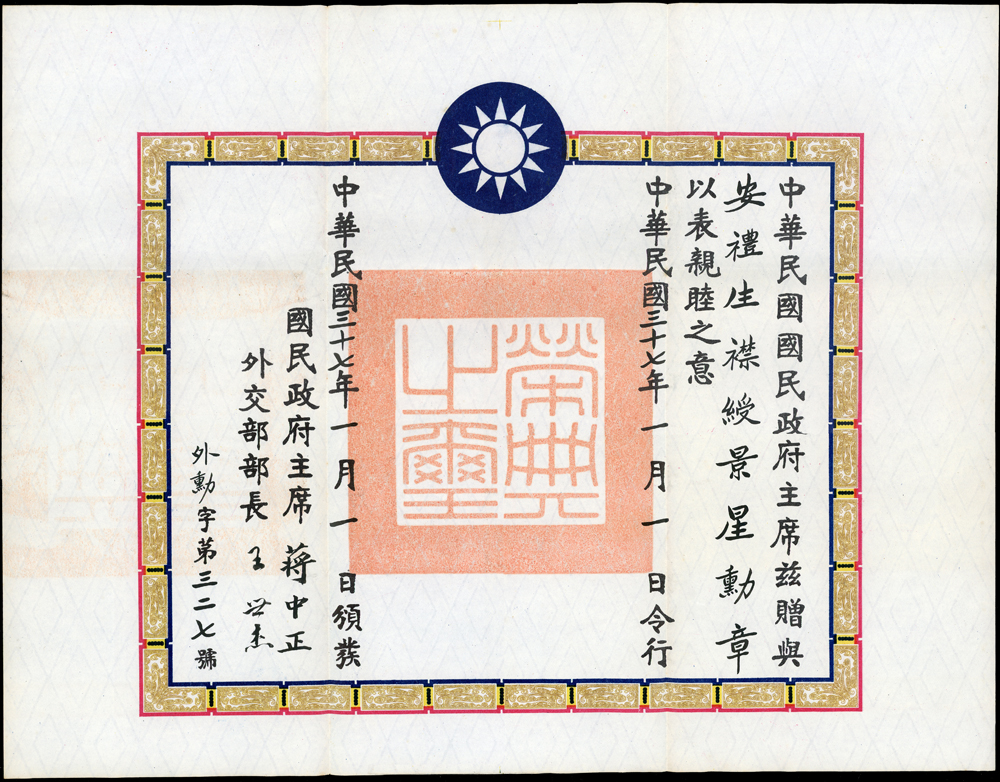 中華民國國民政府主席茲贈與
安禮生襟綬景星勳章
以表親睦之意
中華民國三十七年一月一日令行
榮典之璽
中華民國三十七年一月一日頒發
國民政府主席 蔣中正
外交部部長 王世杰
外勳字第三二七號